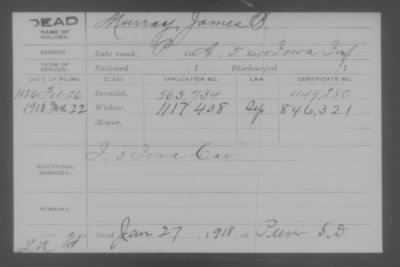 DEAD Murray, James B.
NAME OF SOLDIER:
SERVICE: Late rank, P Co. A, 5 Reg't Iowa Inf
TERM OF SERVICE: Enlisted , 1 Discharged , 1
DATE OF FILING. CLASS. APPLICATION NO. LAW. CERTIFICATE NO.
1886 Feb 26 Invalid, 563,734 449,280
1918 Mch 22 Widow, 1117,408 846,321
Minor,
ADDITIONAL SERVICES: I 5 Iowa Cav
REMARKS:
Died Jan 27, 1918, at Peever S.D